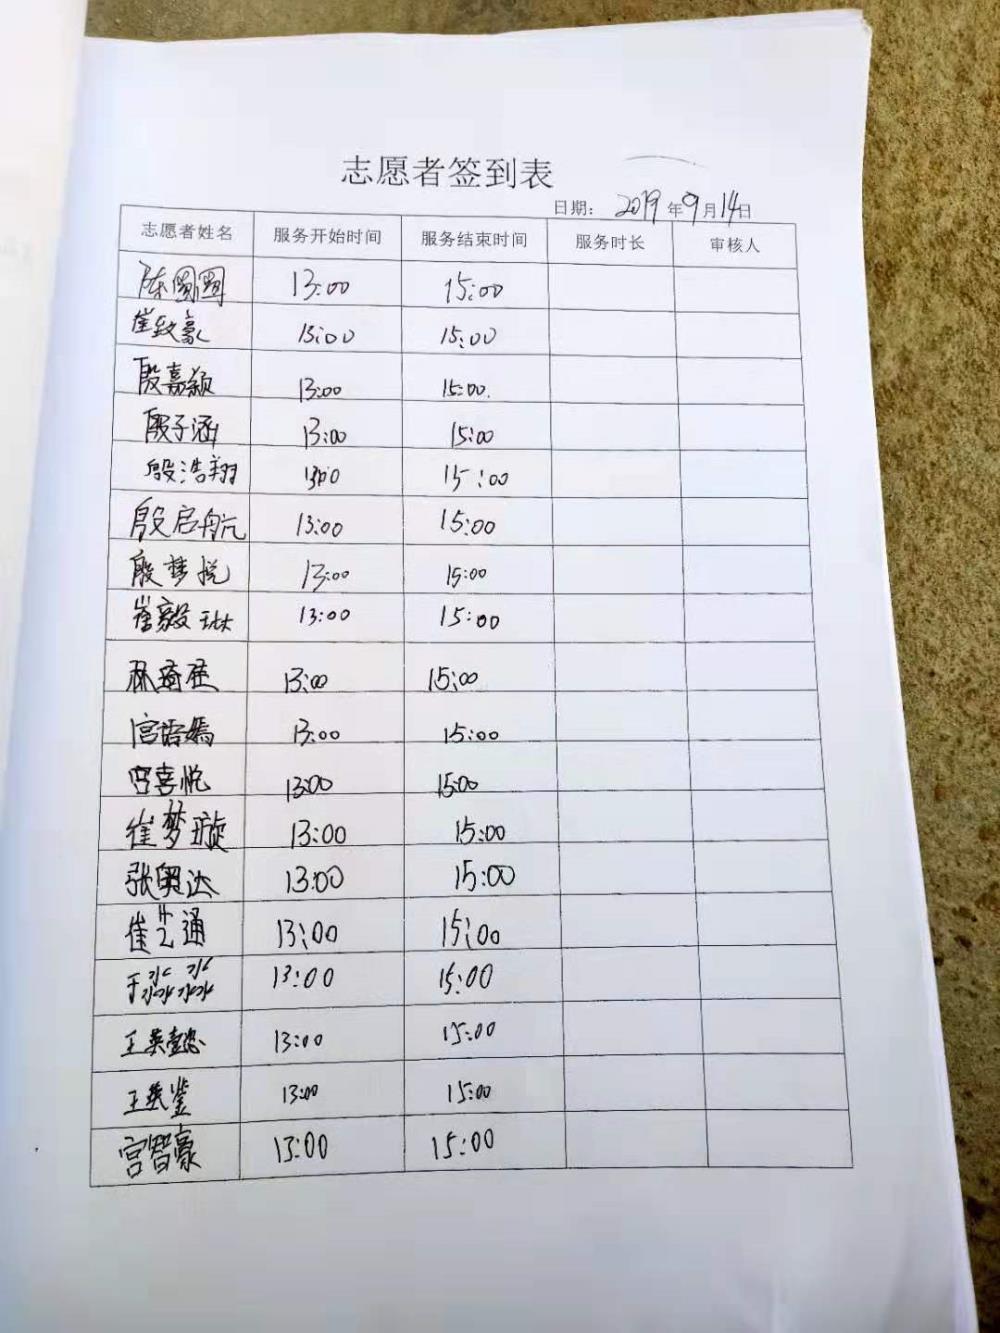 志愿者签到表
日期： 2019 年 9 月 14 日
志愿者姓名 服务开始时间 服务结束时间 服务时长 审核人
陈圆圆 13:00 15:00
崔致豪 13:00 15:00
殷嘉颖 13:00 15:00.
殷子涵 13:00 15:00
殷浩翔 13:00 15:00
殷启航 13:00 15:00
殷梦悦 13:00 15:00
崔毅琳 13:00 15:00
林琦 13:00 15:00
宫语嫣 13:00 15:00
宫喜悦 13:00 15:00
崔梦璇 13:00 15:00
张奥达 13:00 15:00
崔艺通 13:00 15:00
于淼淼 13:00 15:00
王英懿 13:00 15:00
王英鉴 13:00 15:00
宫智豪 13:00 15:00